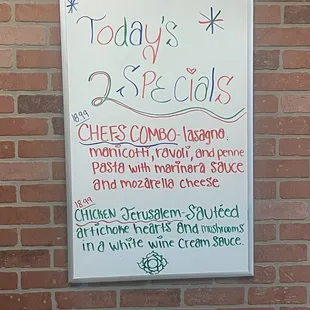 Today's
2 Specials
18.99
CHEFS COMBO-lasagna,
manicotti, ravoli, and penne
Pasta with marinara sauce
and mozarella cheese
18.99
CHICKEN Jerusalem-Sautéed
artichoke hearts and mushrooms
in a white wine cream sauce.